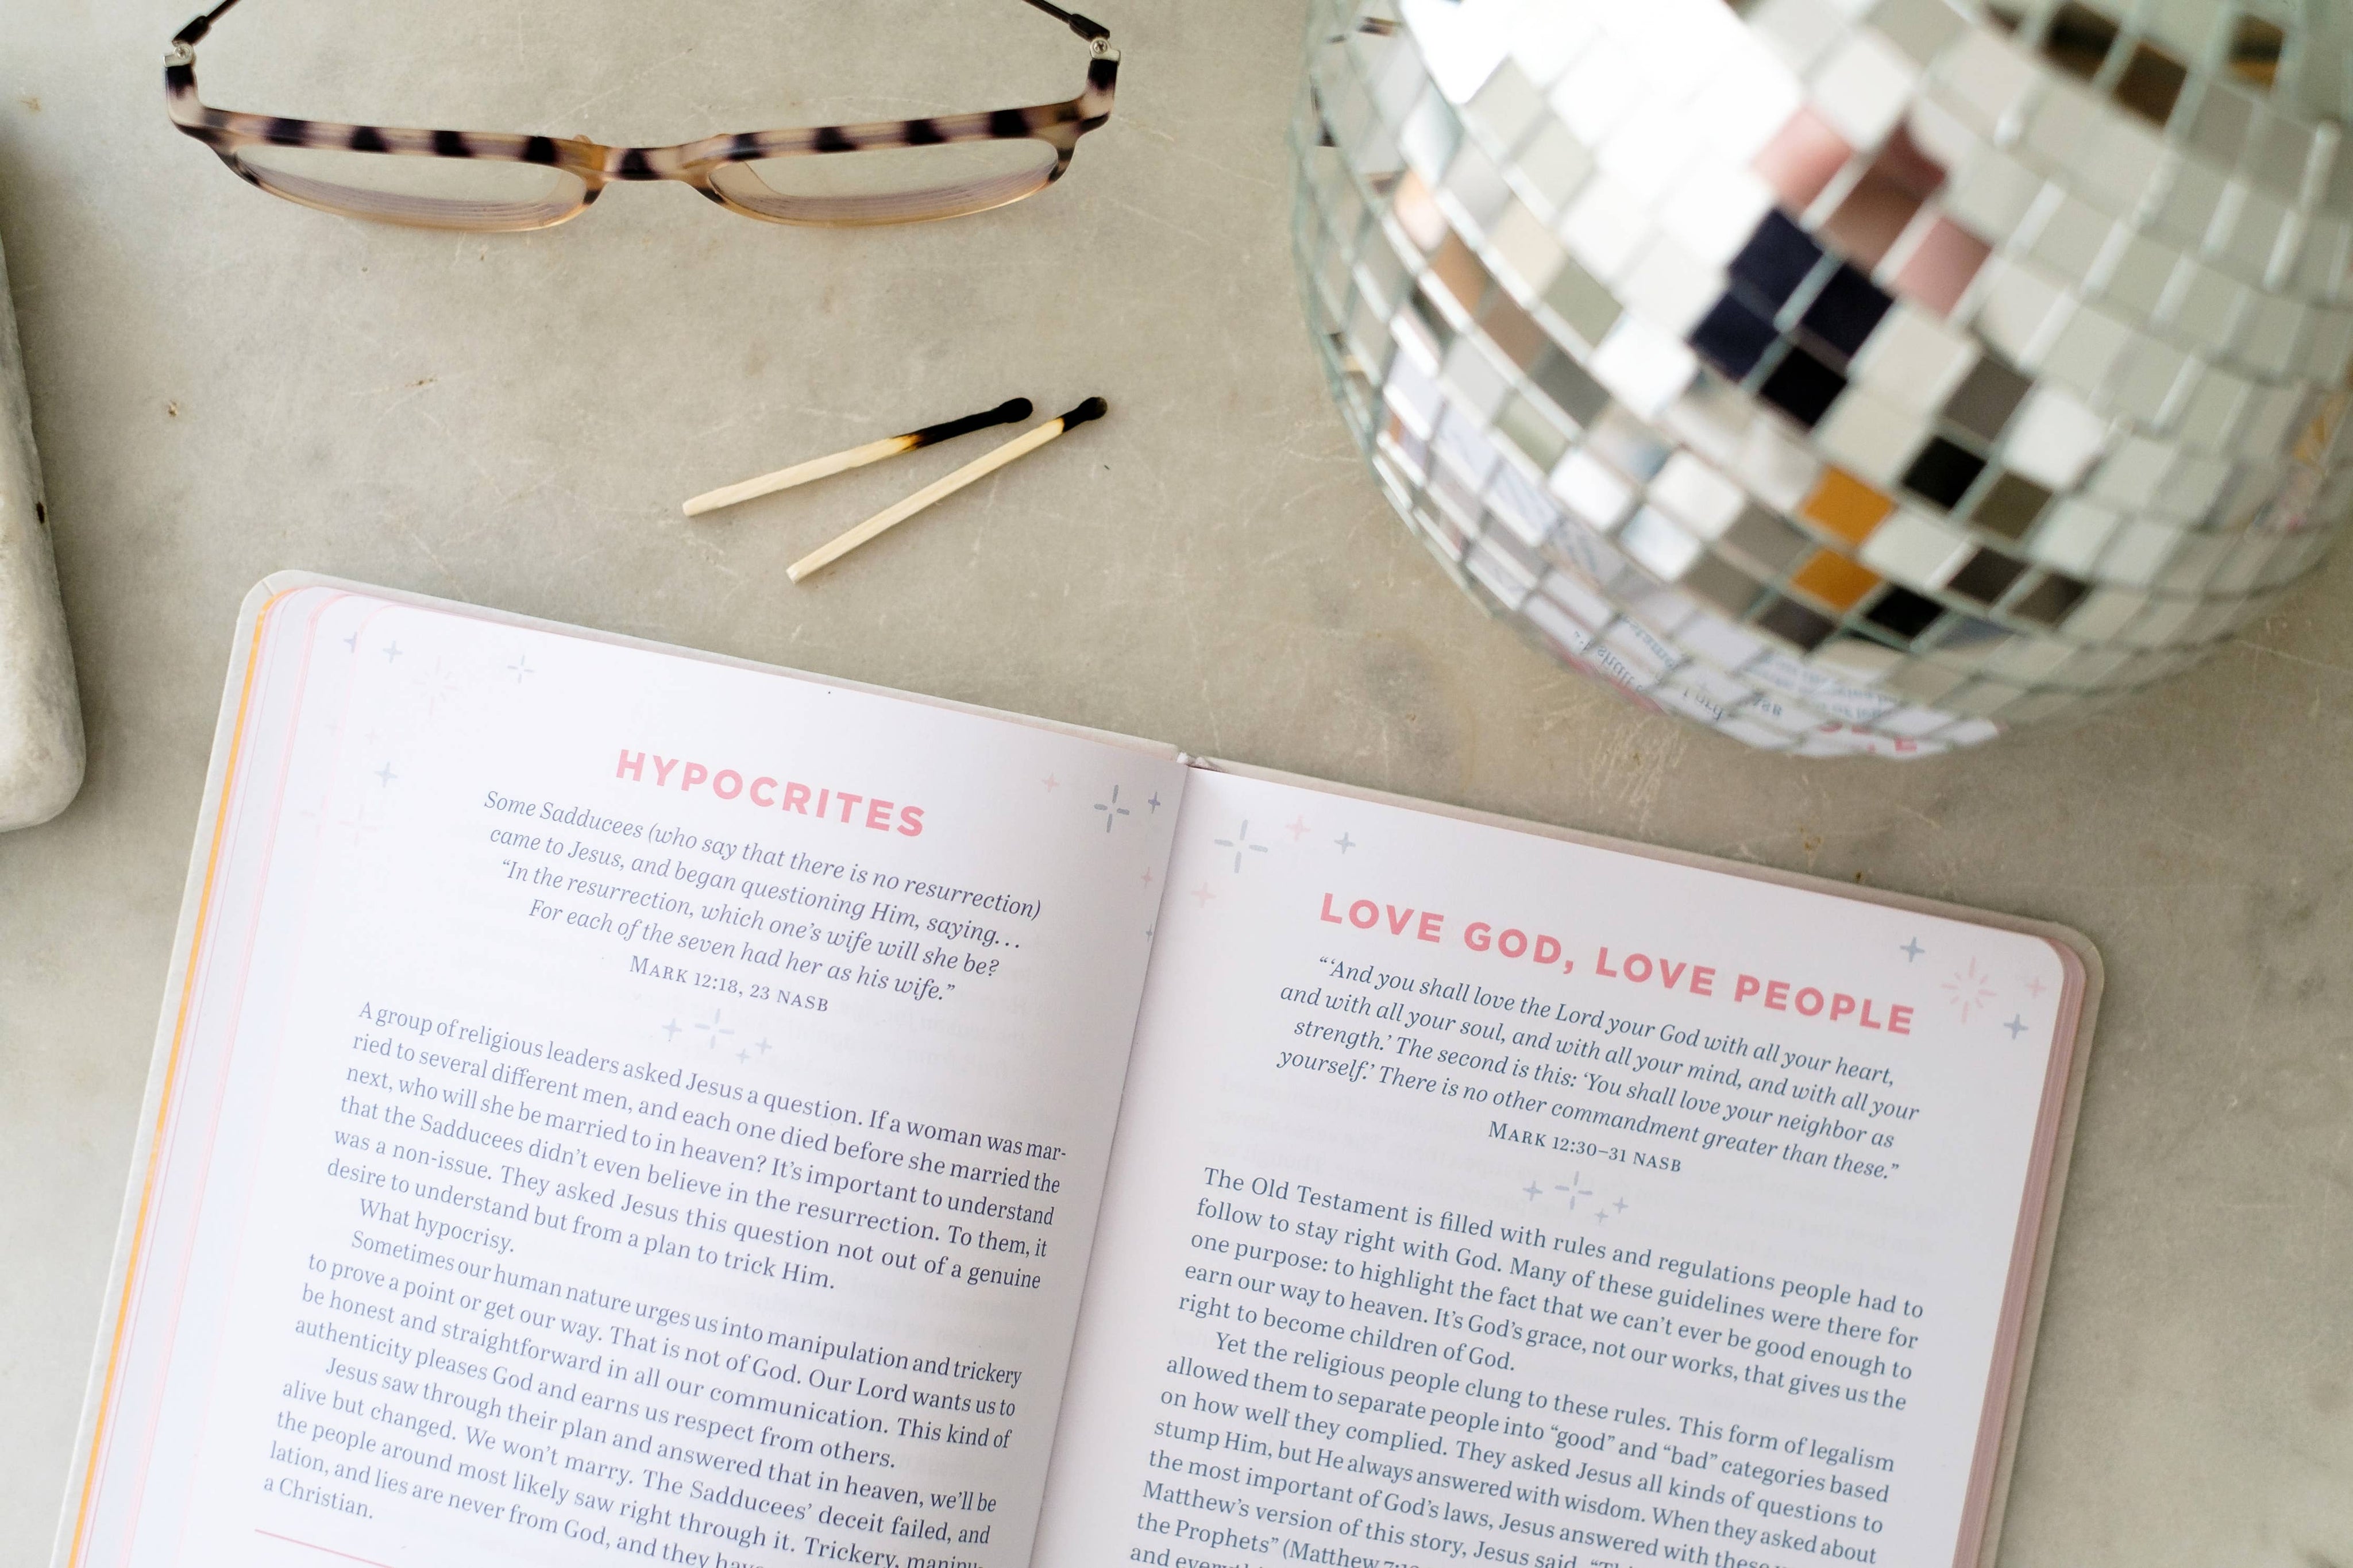 HYPOCRITES
Some Sadducees (who say that there is no resurrection)
came to Jesus, and began questioning Him, saying...
“In the resurrection, which one’s wife will she be?
For each of the seven had her as his wife.”
MARK 12:18, 23 NASB
A group of religious leaders asked Jesus a question. If a woman was mar-
ried to several different men, and each one died before she married the
next, who will she be married to in heaven? It’s important to understand
that the Sadducees didn’t even believe in the resurrection. To them, it
was a non-issue. They asked Jesus this question not out of a genuine
desire to understand but from a plan to trick Him.
What hypocrisy.
Sometimes our human nature urges us into manipulation and trickery
to prove a point or get our way. That is not of God. Our Lord wants us to
be honest and straightforward in all our communication. This kind of
authenticity pleases God and earns us respect from others.
Jesus saw through their plan and answered that in heaven, we’ll be
alive but changed. We won’t marry. The Sadducees’ deceit failed, and
the people around most likely saw right through it. Trickery, manipu-
lation, and lies are never from God, and they have
a Christian.
LOVE GOD, LOVE PEOPLE
“‘And you shall love the Lord your God with all your heart,
and with all your soul, and with all your mind, and with all your
strength.’ The second is this: ‘You shall love your neighbor as
yourself.’ There is no other commandment greater than these.”
MARK 12:30–31 NASB
The Old Testament is filled with rules and regulations people had to
follow to stay right with God. Many of these guidelines were there for
one purpose: to highlight the fact that we can’t ever be good enough to
earn our way to heaven. It’s God’s grace, not our works, that gives us the
right to become children of God.
Yet the religious people clung to these rules. This form of legalism
allowed them to separate people into “good” and “bad” categories based
on how well they complied. They asked Jesus all kinds of questions to
stump Him, but He always answered with wisdom. When they asked about
the most important of God’s laws, Jesus answered with these
Matthew’s version of this story, Jesus said,
the Prophets” (Matthew
and